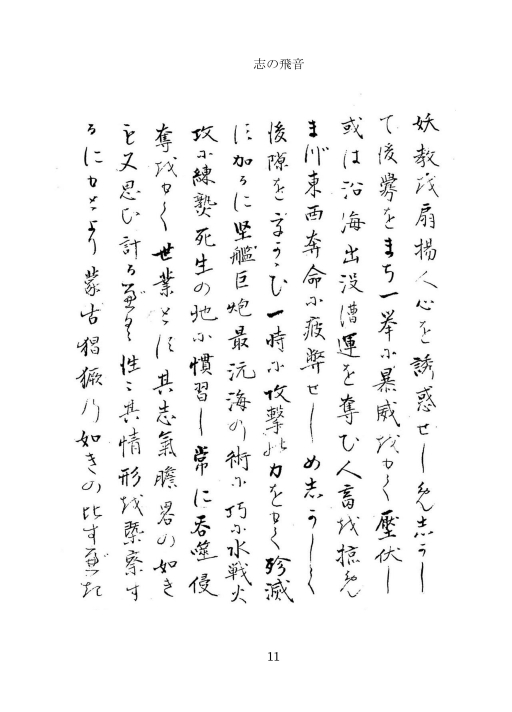 志の飛音
妖教を扇揚人心を誘惑せしめ志うし
て後釁をまち一挙に暴威をもて壓伏し
或は沿海出没漕運を奪ひ人畜を掠め
ま川東西奔命に疲弊せしめ志うして
後隙をうかゝひ一時に攻撃此力をもて殄滅
に加るに堅艦巨炮最沅海の術に巧に水戦火
攻に練熟死生の地に慣習し常に呑噬侵
奪をもて世業とし其志氣膽畧の如き
も又思ひ計るべし性〻其情形を熟察す
るにもとより蒙古猖獗乃如きの比すべき
11